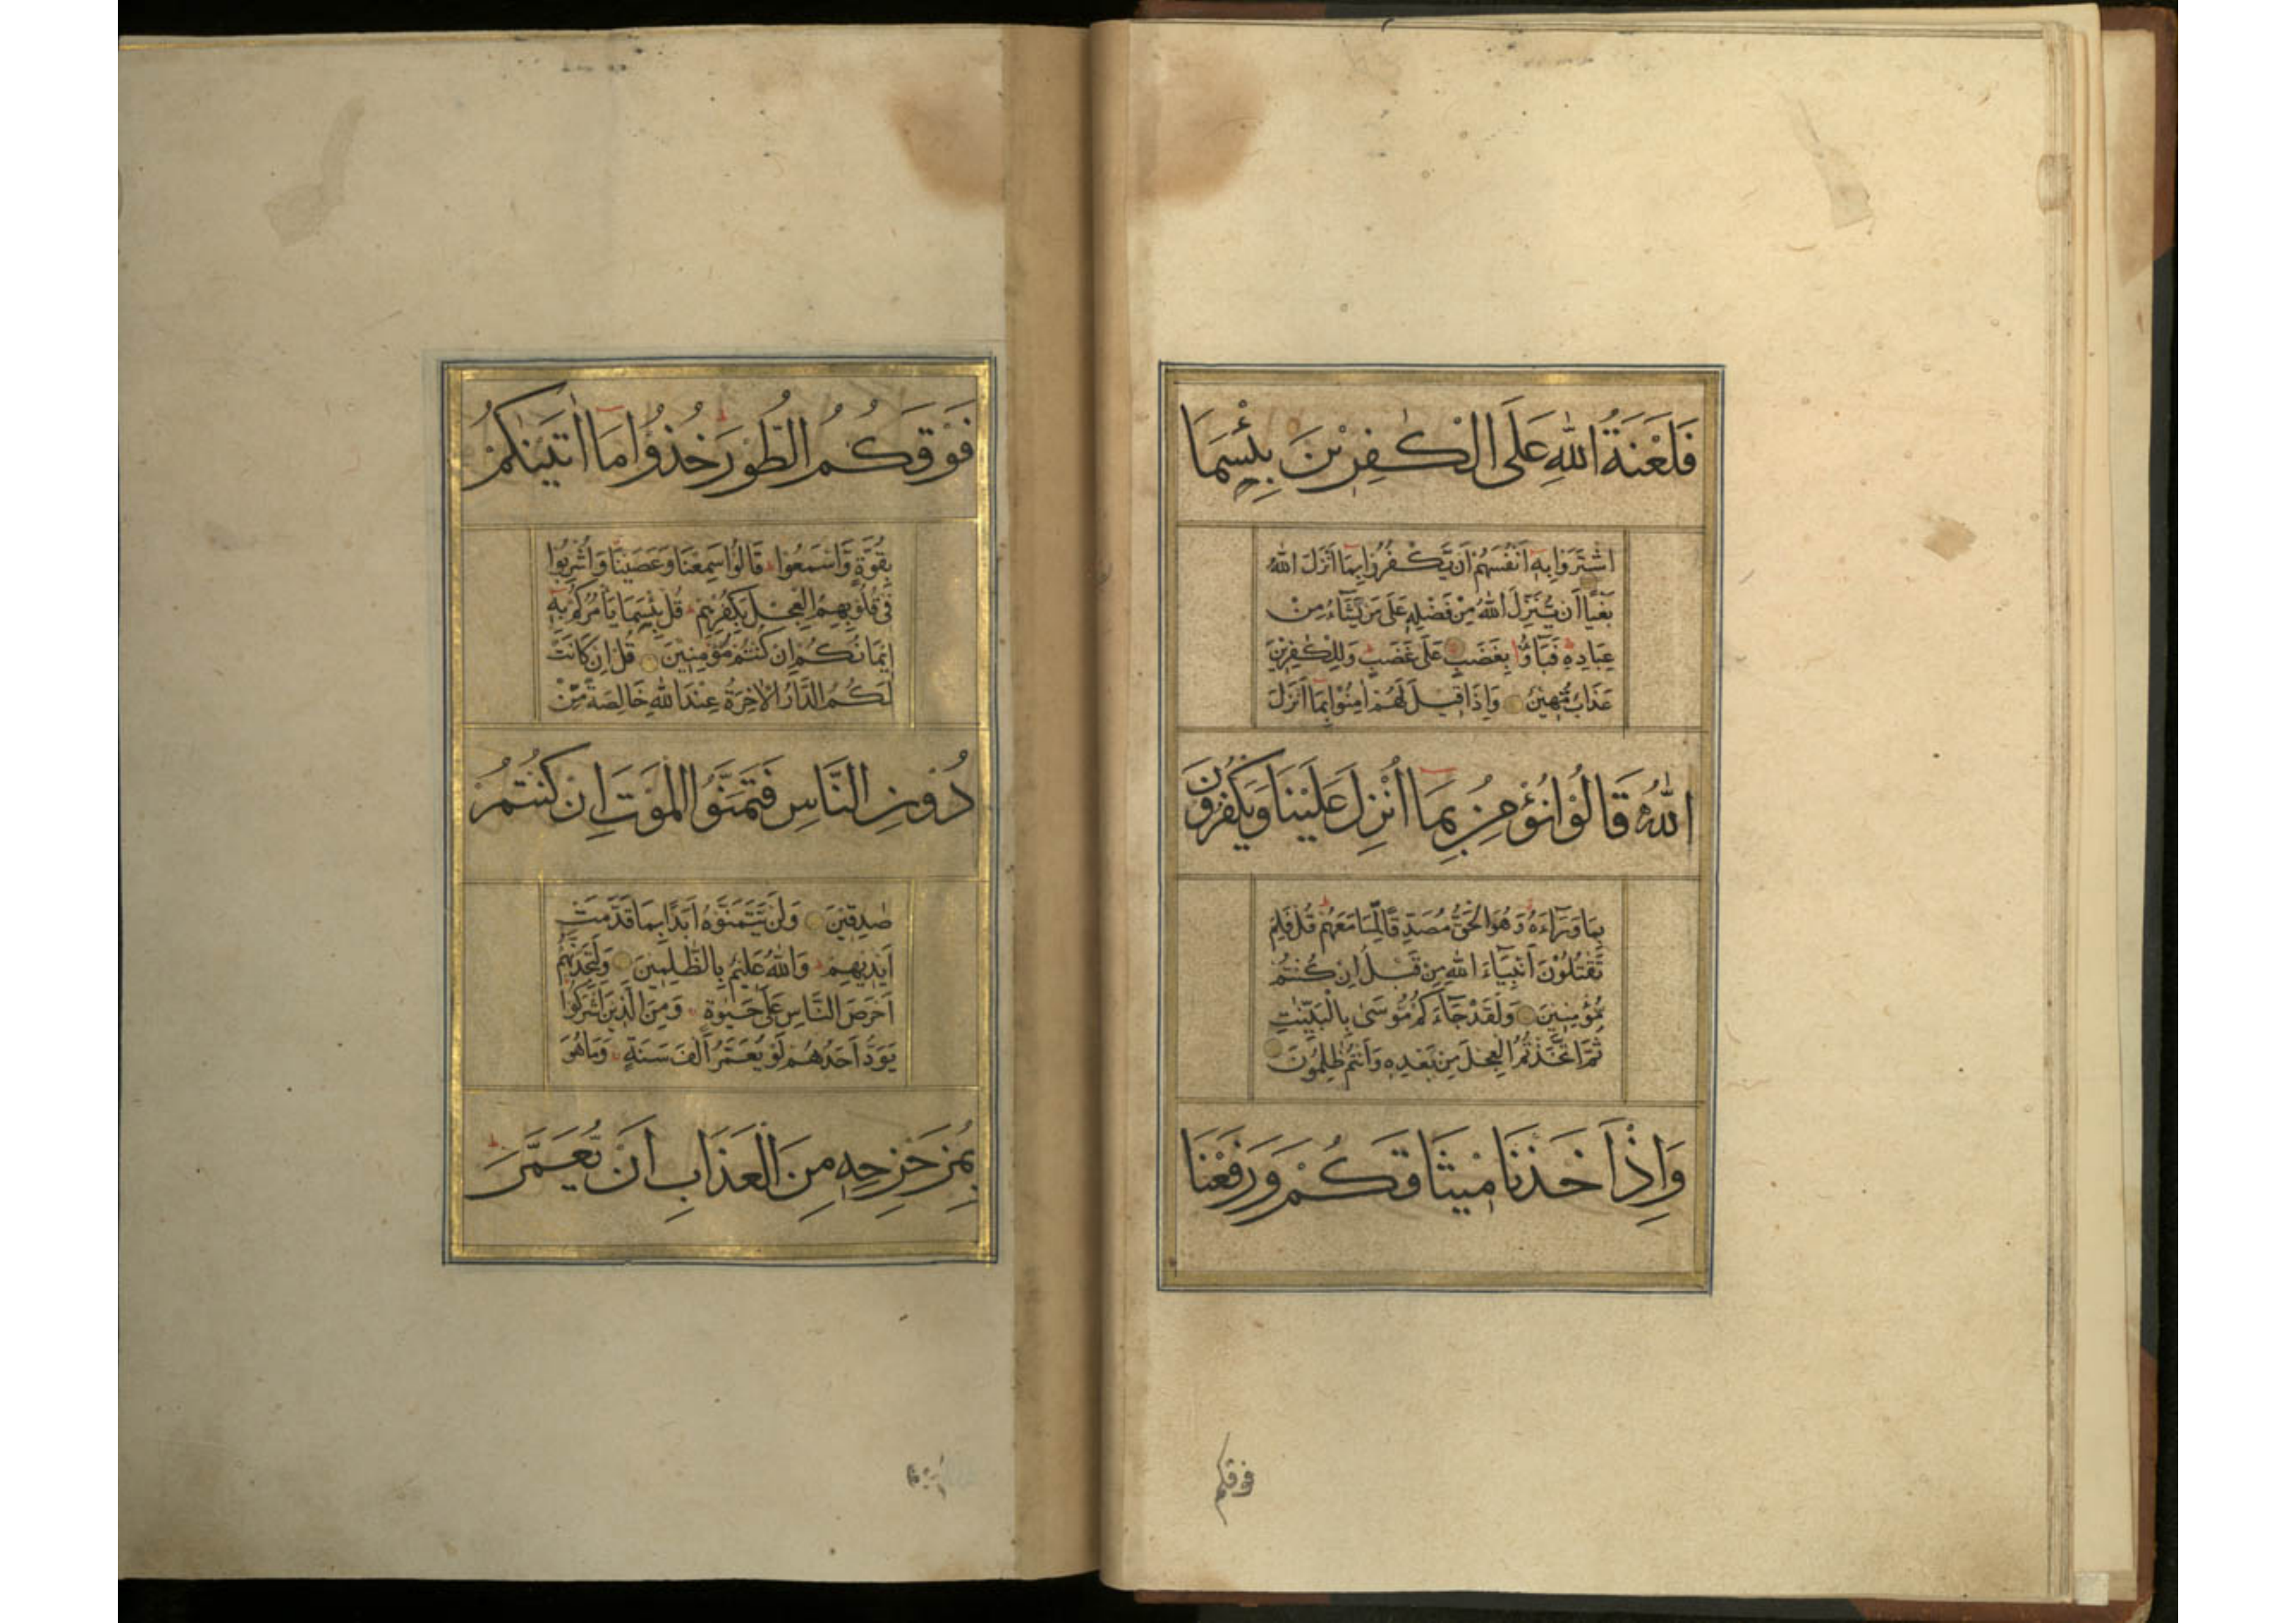 فَلَعْنَةُ اللّٰهِ عَلَى الْكٰفِرِيْنَ بِئْسَمَا
اشْتَرَوْا بِهٖٓ اَنْفُسَهُمْ اَنْ يَّكْفُرُوْا بِمَآ اَنْزَلَ اللّٰهُ
بَغْيًا اَنْ يُّنَزِّلَ اللّٰهُ مِنْ فَضْلِهٖ عَلٰى مَنْ يَّشَآءُ مِنْ
عِبَادِهٖ فَبَآؤُا بِغَضَبٍ عَلٰى غَضَبٍ وَلِلْكٰفِرِيْنَ
عَذَابٌ مُّهِيْنٌ وَاِذَا قِيْلَ لَهُمْ اٰمِنُوْا بِمَآ اَنْزَلَ
اللّٰهُ قَالُوْا نُؤْمِنُ بِمَآ اُنْزِلَ عَلَيْنَا وَيَكْفُرُوْنَ
بِمَا وَرَآءَهٗ وَهُوَ الْحَقُّ مُصَدِّقًا لِّمَا مَعَهُمْ قُلْ فَلِمَ
تَقْتُلُوْنَ اَنْبِيَآءَ اللّٰهِ مِنْ قَبْلُ اِنْ كُنْتُمْ
مُّؤْمِنِيْنَ وَلَقَدْ جَآءَكُمْ مُّوْسٰى بِالْبَيِّنٰتِ
ثُمَّ اتَّخَذْتُمُ الْعِجْلَ مِنْ بَعْدِهٖ وَاَنْتُمْ ظٰلِمُوْنَ
وَاِذْ اَخَذْنَا مِيْثَاقَكُمْ وَرَفَعْنَا
فوقكم
فَوْقَكُمُ الطُّوْرَ خُذُوْا مَآ اٰتَيْنٰكُمْ
بِقُوَّةٍ وَّاسْمَعُوْا قَالُوْا سَمِعْنَا وَعَصَيْنَا وَاُشْرِبُوْا
فِيْ قُلُوْبِهِمُ الْعِجْلَ بِكُفْرِهِمْ قُلْ بِئْسَمَا يَأْمُرُكُمْ بِهٖٓ
اِيْمَانُكُمْ اِنْ كُنْتُمْ مُّؤْمِنِيْنَ قُلْ اِنْ كَانَتْ
لَكُمُ الدَّارُ الْاٰخِرَةُ عِنْدَ اللّٰهِ خَالِصَةً مِّنْ
دُوْنِ النَّاسِ فَتَمَنَّوُا الْمَوْتَ اِنْ كُنْتُمْ
صٰدِقِيْنَ وَلَنْ يَّتَمَنَّوْهُ اَبَدًا بِمَا قَدَّمَتْ
اَيْدِيْهِمْ وَاللّٰهُ عَلِيْمٌ بِالظّٰلِمِيْنَ وَلَتَجِدَنَّهُمْ
اَحْرَصَ النَّاسِ عَلٰى حَيٰوةٍ وَمِنَ الَّذِيْنَ اَشْرَكُوْا
يَوَدُّ اَحَدُهُمْ لَوْ يُعَمَّرُ اَلْفَ سَنَةٍ وَمَا هُوَ
بِمُزَحْزِحِهٖ مِنَ الْعَذَابِ اَنْ يُّعَمَّرَ